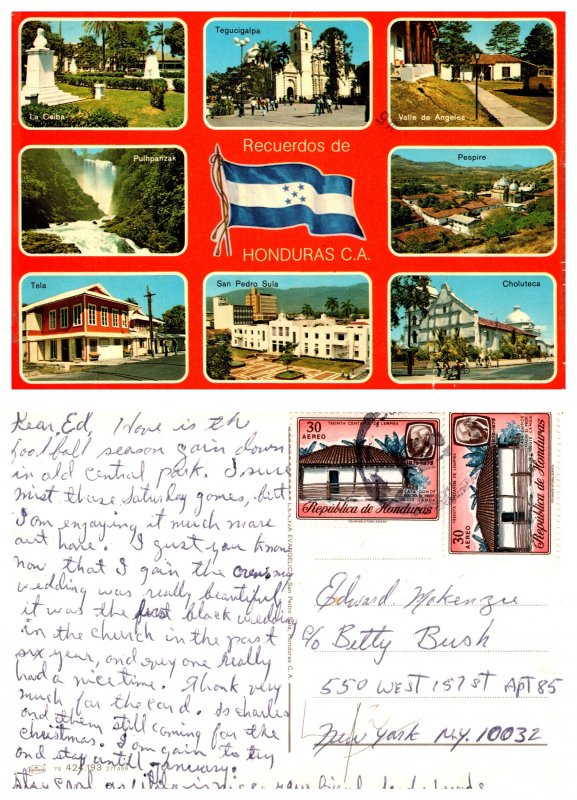 La Ceiba
Tegucigalpa
Valle de Angeles
Recuerdos de
HONDURAS C.A.
Pulhpanzak
Pespire
Tela
San Pedro Sula
Choluteca
Dear, Ed, How is the
football season gain down
in old central park. I sure
mist those saturday games, but
I am engaying it much more
out here. I gust you know
now that I gain the
wedding was really beautiful,
it was the first black wedding
in the church in the past
six year, and every one really
had a nice time. Thank very
much for the card. Is Charles
and them still coming for the
christmas. I am gain to try
and stay until January.
stay cool as
79 424.193
30
AEREO
TREINTA CENTAVOS DE LEMPIRA
República de Honduras
30
AEREO
TREINTA CENTAVOS DE LEMPIRA
República de Honduras
Edward McKenzie
c/o Betty Bush
550 WEST 157 ST APT 85
New York N.Y. 10032